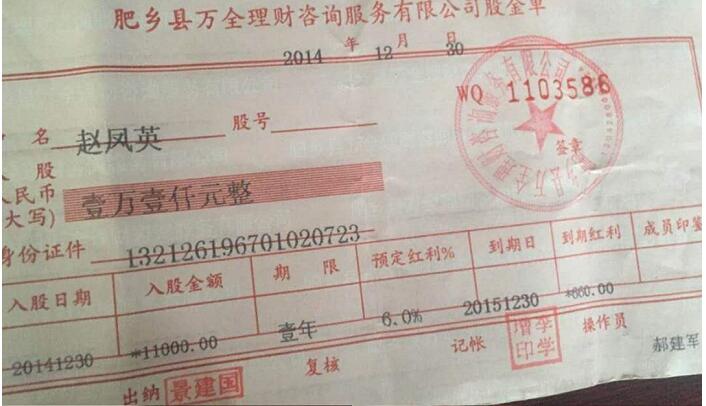 肥乡县万全理财咨询服务有限公司股金单
2014 年 12 月 30 日
WQ 1103586
名 赵凤英 股号
签章
入股
人民币
(大写) 壹万壹仟元整
身份证件 132126196701020723
入股日期 入股金额 期 限 预定红利% 到期日 到期红利 成员印签
20141230 *11000.00 壹年 6.0% 20151230 *660.00
出纳 景建国 复核 记帐 操作员 郝建军